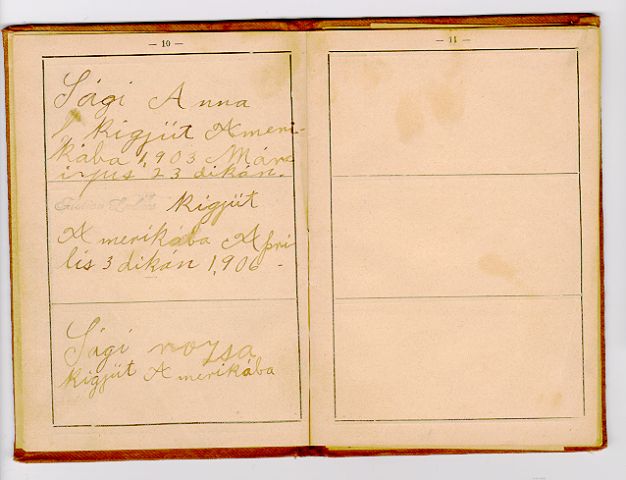 — 10 —
Sági Anna
kigjüt Ameri-
kába 1,903 Már
izpus 23 dikán.
kigjüt
Amerikába Apri
lis 3 dikán 1,906 -
Sági rozsa
kigjüt Amerikába
— 11 —